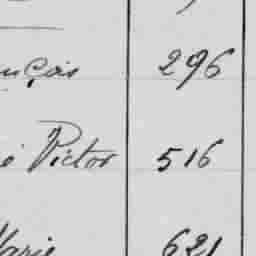 nçois 296
é Victor 516
Marie 621